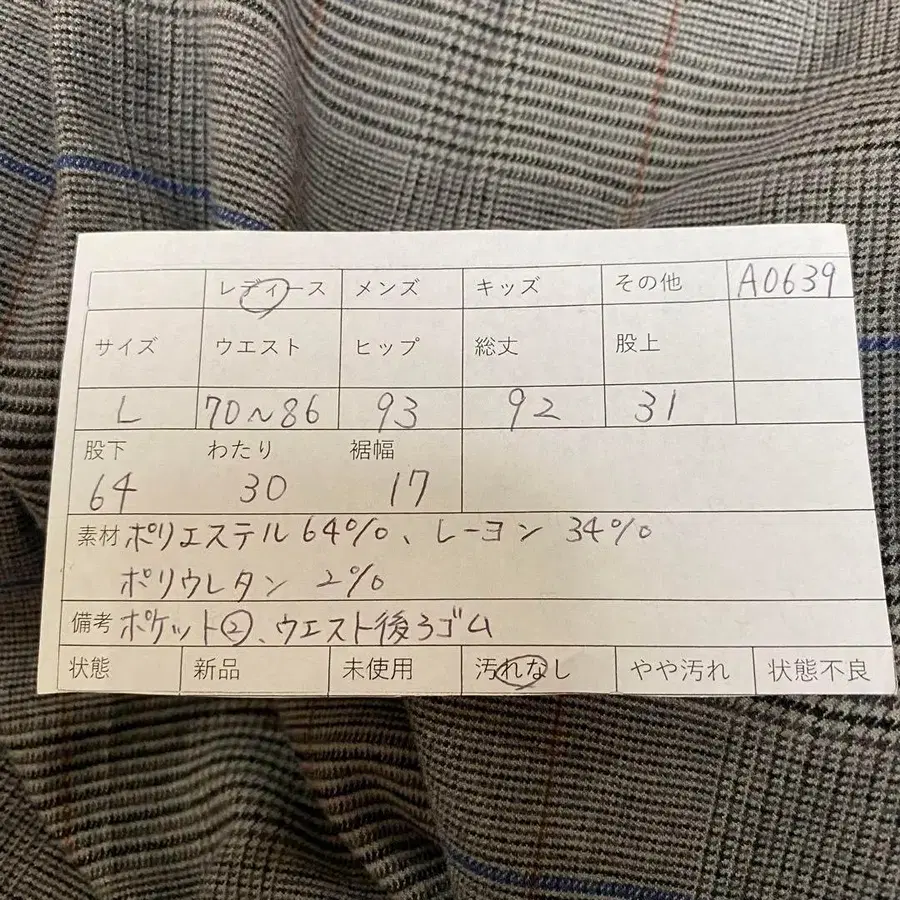 レディース メンズ キッズ その他 A0639
サイズ ウエスト ヒップ 総丈 股上
L 70~86 93 92 31
股下 わたり 裾幅
64 30 17
素材 ポリエステル 64%、レーヨン 34%
ポリウレタン 2%
備考 ポケット②、ウエスト後ろゴム
状態 新品 未使用 汚れなし やや汚れ 状態不良